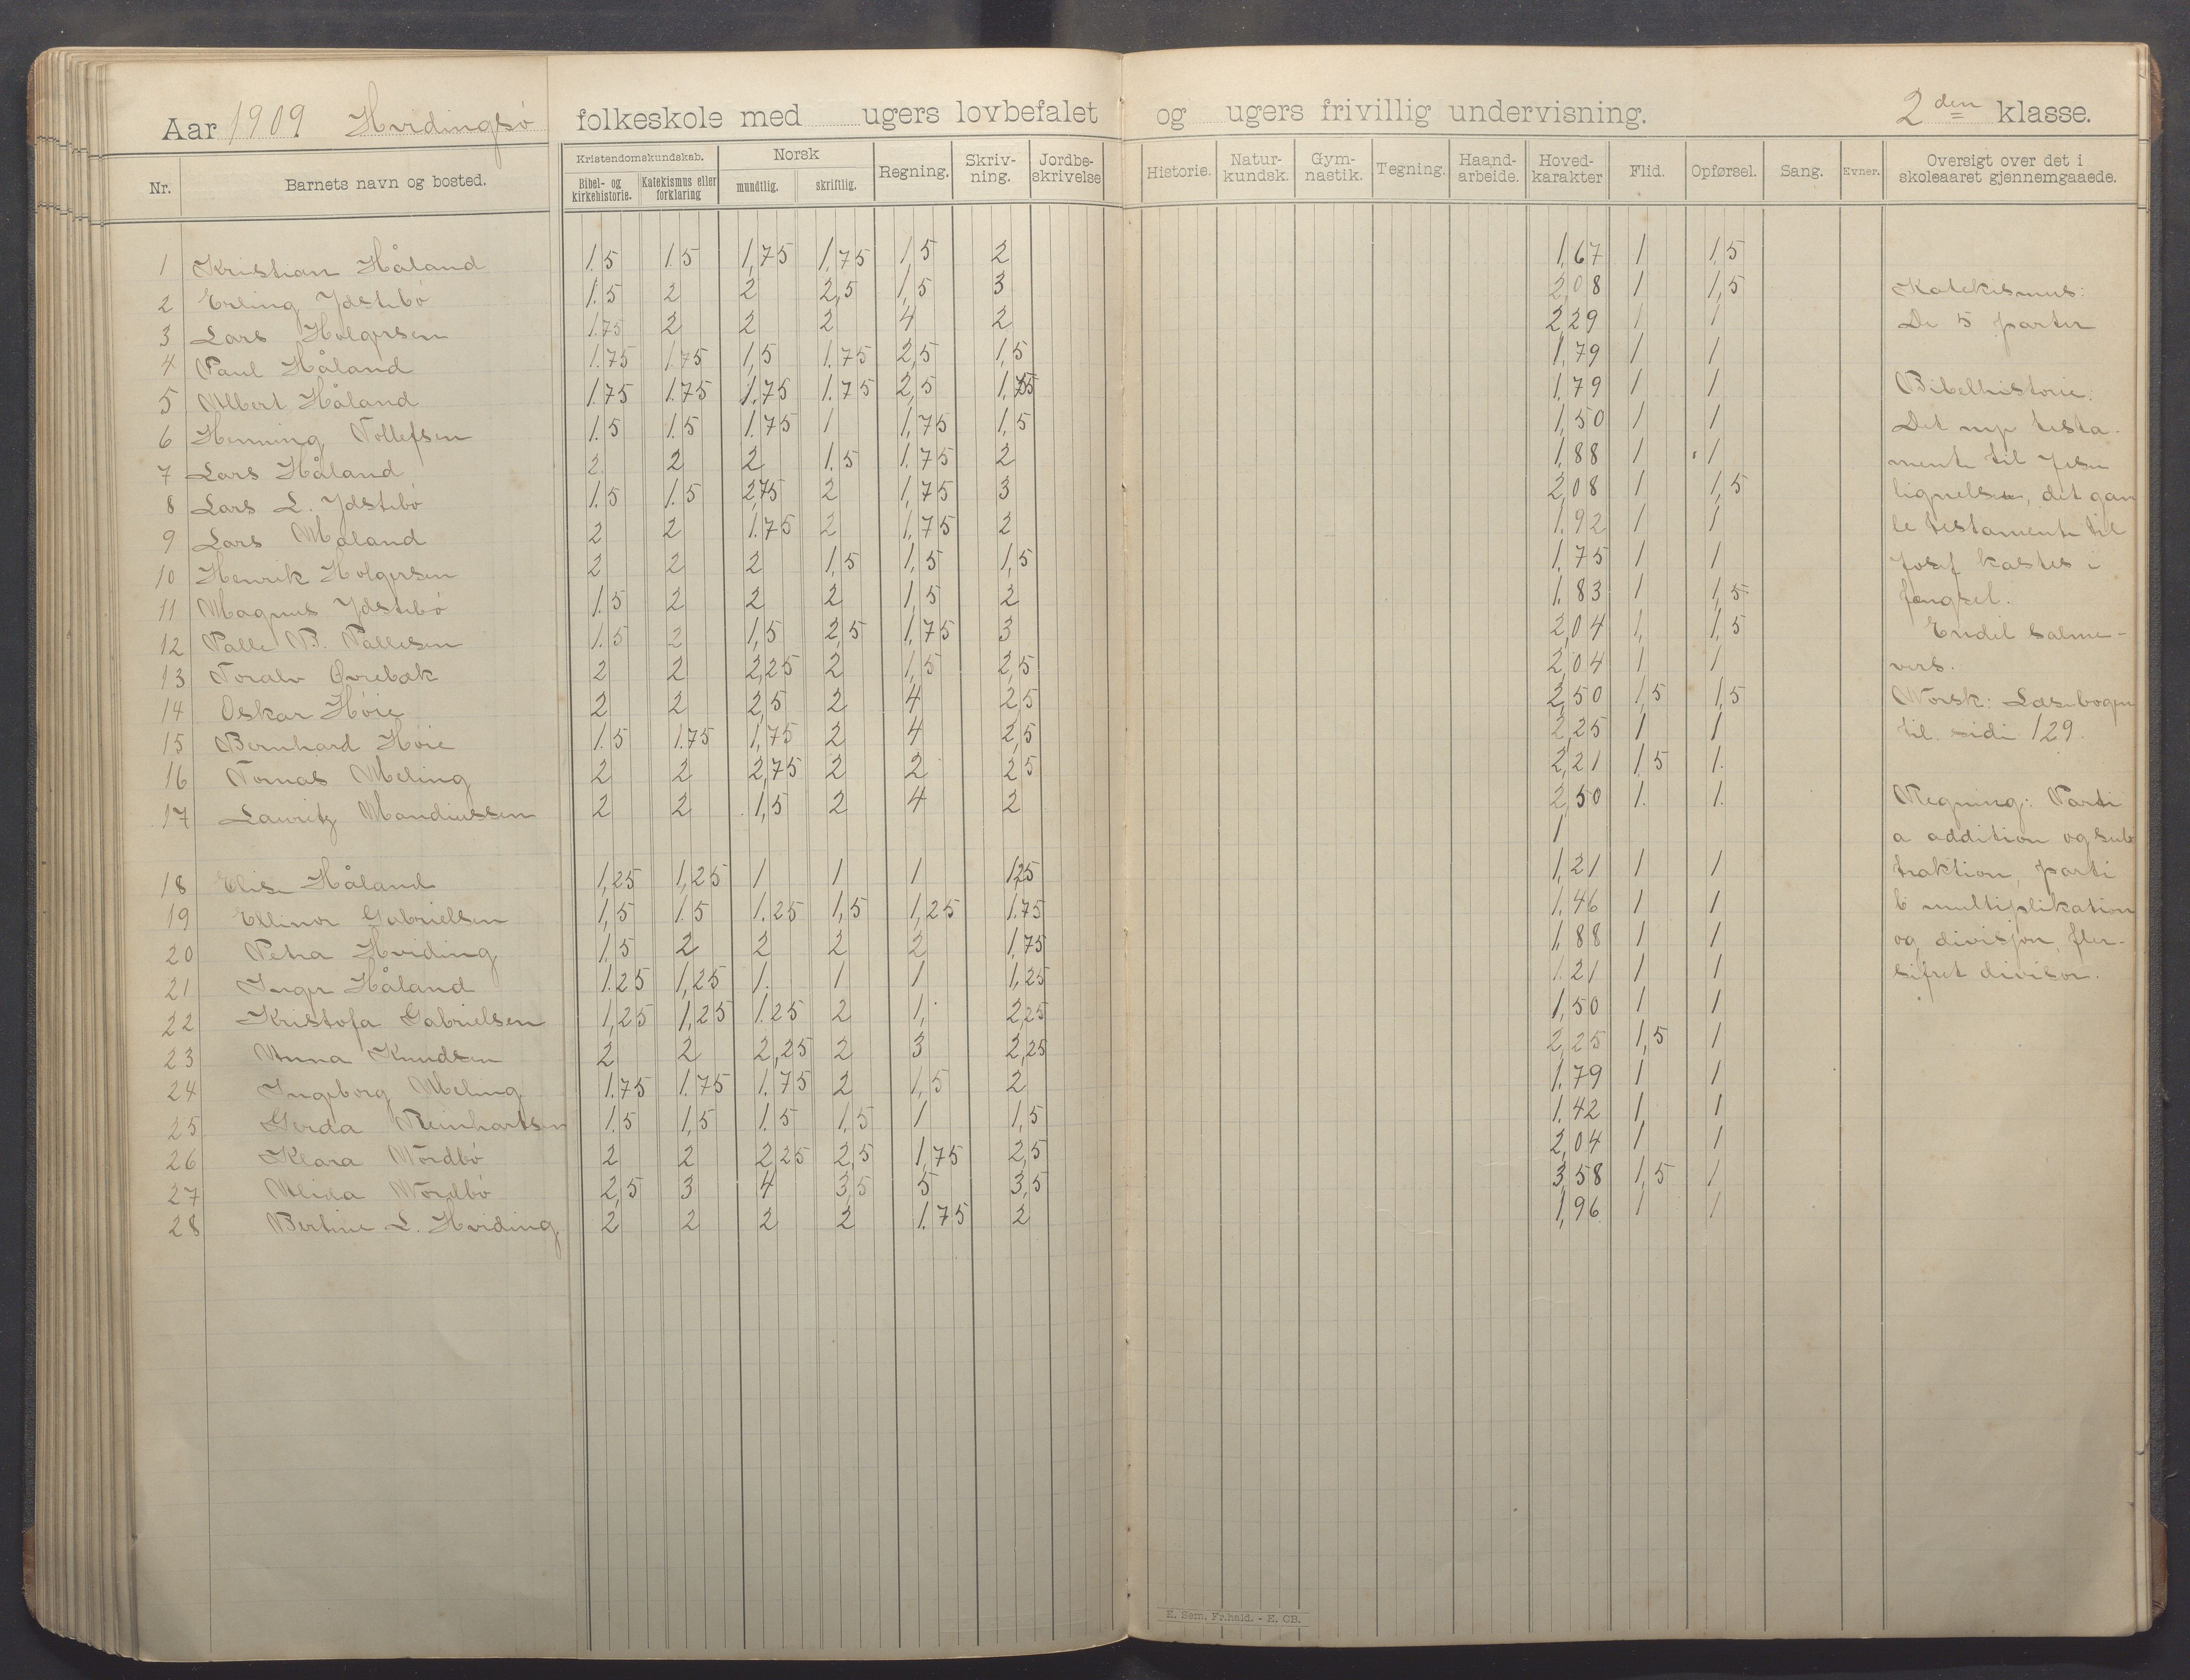 Aar 1909 Hvidingsø folkeskole med ugers lovbefalet og ugers frivillig undervisning. 2den klasse.
Nr. Barnets navn og bosted. Kristendomskundskab. Bibel- og kirkehistorie. Katekismus eller forklaring Norsk mundtlig. skriftlig. Regning. Skriv-ning. Jordbe-skrivelse Historie. Natur-kundsk. Gym-nastik. Tegning. Haand-arbeide. Hoved-karakter Flid. Opførsel. Sang. Evner. Oversigt over det i skoleaaret gjennemgaaede.
1 Kristian Håland 1.5 1.5 1,75 1.75 1,5 2 1,67 1 1,5
2 Erling Ydstebø 1.5 2 2 2,5 1,5 3 2,08 1 1,5
3 Lars Holgersen 1.75 2 2 2 4 2 2,29 1 1
4 Paul Håland 1.75 1.75 1,5 1.75 2,5 1,5 1,79 1 1
5 Albert Håland 1.75 1.75 1,75 1.75 2,5 1,75 1,79 1 1
6 Henning Tollefsen 1.5 1.5 1.75 1 1,75 1,5 1,50 1 1
7 Lars Håland 2. 2 2 1.5 1.75 2 1,88 1 1
8 Lars L. Ydstebø 1.5 1.5 2,75 2 1,75 3 2,08 1 1,5
9 Lars Måland 2 2 1.75 2 1,75 2 1.92 1 1
10 Henrik Holgersen 2 2 2 1,5 1,5 1,5 1,75 1 1
11 Magnus Ydstebø 1.5 2 2 2 1,5 2 1.83 1 1,5
12 Palle B. Pallesen 1.5 2 1,5 2,5 1,75 3 2,04 1, 1,5
13 Toralv Øvrebæk 2 2 2,25 2 1,5 2,5 2,04 1 1
14 Oskar Høie 2 2 2,5 2 4 2,5 2,50 1,5 1,5
15 Bernhard Høie 1.5 1.75 1,75 2 4 2,5 2,25 1 1
16 Tomas Meling 2 2 2,75 2 2 2,5 2,21 1,5 1.
17 Lauritz Mandiussen 2 2 1,5 2 4 2 2,50 1. 1.
1
18 Elise Håland 1,25 1,25 1 1 1 1,25 1,21 1 1
19 Ellinor Gabrielsen 1,5 1.5 1.25 1,5 1,25 1.75 1.46 1 1
20 Petra Hviding 1,5 2 2 2 2 1,75 1,88 1 1
21 Inger Håland 1.25 1,25 1. 1 1 1,25 1.21 1 1
22 Kristofa Gabrielsen 1,25 1,25 1.25 2 1, 2,25 1,50 1 1
23 Anna Knudsen 2 2 2,25 2 3 2,25 2,25 1,5 1
24 Ingeborg Meling 1.75 1.75 1.75 2 1,5 2 1.79 1 1
25 Gerda Reinhartsen 1.5 1,5 1.5 1,5 1 1,5 1,42 1 1
26 Klara Nordbø 2 2 2,25 2,5 1,75 2,5 2,04 1 1
27 Alida Nordbø 2,5 3 4 3,5 5 3,5 3,58 1,5 1
28 Bertine L. Hviding 2 2 2 2 1.75 2 1,96 1 1
Katekismus:
De 5 parter
Bibelhistorie:
Det nye testa-
mente til Jesu
lignelser, det gam
le testamente til
Josef kastes i
fængsel.
Endel salme-
vers.
Norsk: Læsebogen
til side 129.
Regning: Parti
a addition og sub
traktion, parti
b multiplikation
og divisjon, fler-
sifret divisor.
E. Sem, Fr.hald. - E. CB.